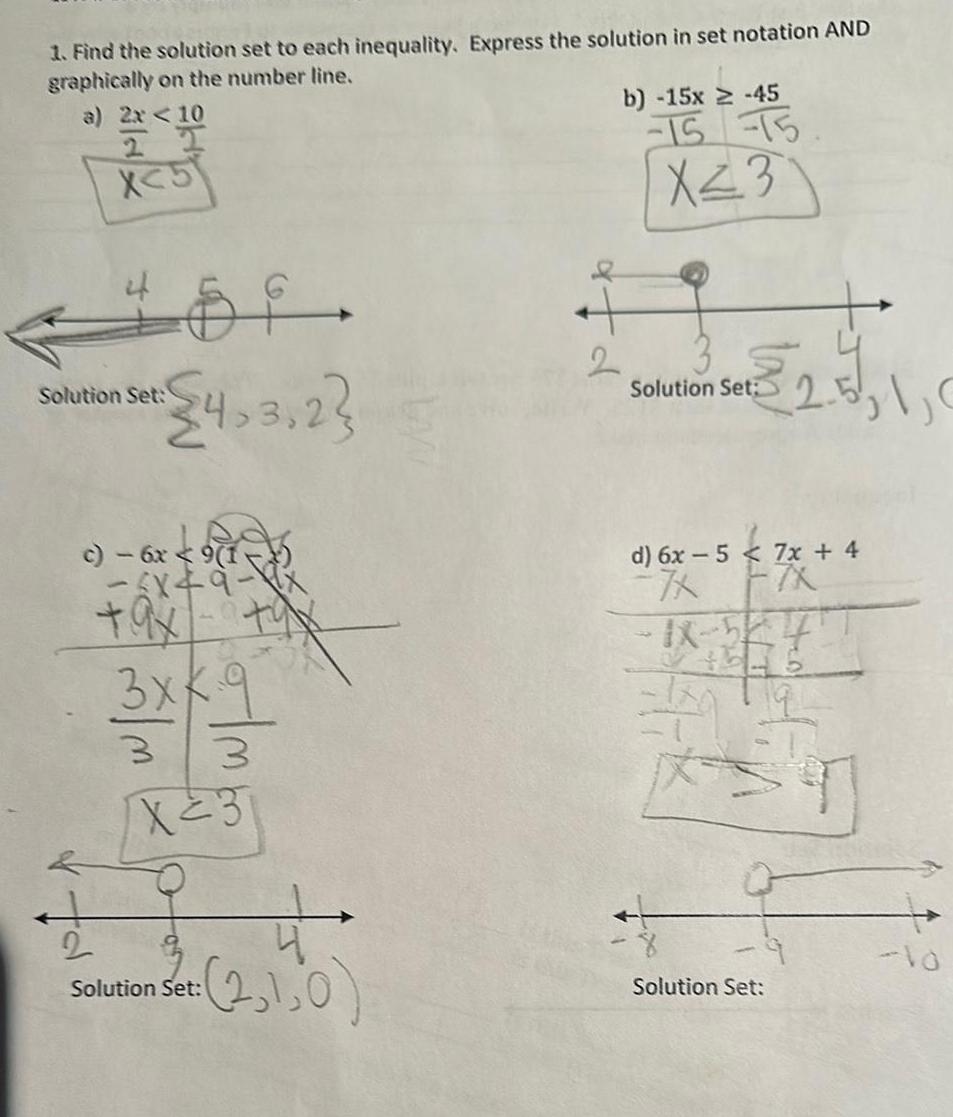 1. Find the solution set to each inequality. Express the solution in set notation AND
graphically on the number line.
a) 2x < 10
2 2
x<5
4 5 6
Solution Set: {4,3,2}
b) -15x ≥ -45
-15 -15
X ≤ 3
2 3 4
Solution Set: { 2.5,1,
c) – 6x < 9(1 – x)
-6x < 9-9x
+9x +9x
3x < 9
3 3
X < 3
2 3 4
Solution Set: (2,1,0)
d) 6x – 5 < 7x + 4
-7x -7x
-1x-5 < 4
+5 +5
-1x 9
-1 -1
x > 9
-8 -9 -10
Solution Set: